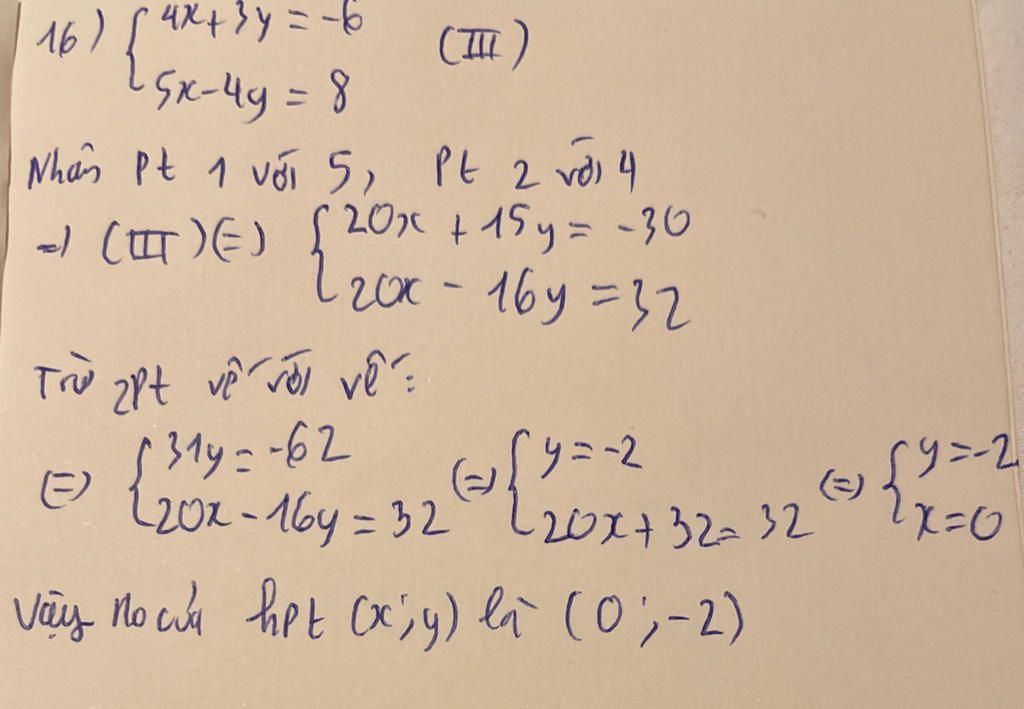 16) { 4x + 3y = -6 (III)
5x - 4y = 8
Nhân Pt 1 với 5, Pt 2 với 4
=) (III) (=) { 20x + 15y = -30
20x - 16y = 32
Trừ 2Pt vế với vế:
(=) { 31y = -62 (=) { y = -2 (=) { y = -2
20x - 16y = 32 20x + 32 = 32 x = 0
Vậy no của hpt (x;y) là (0;-2)